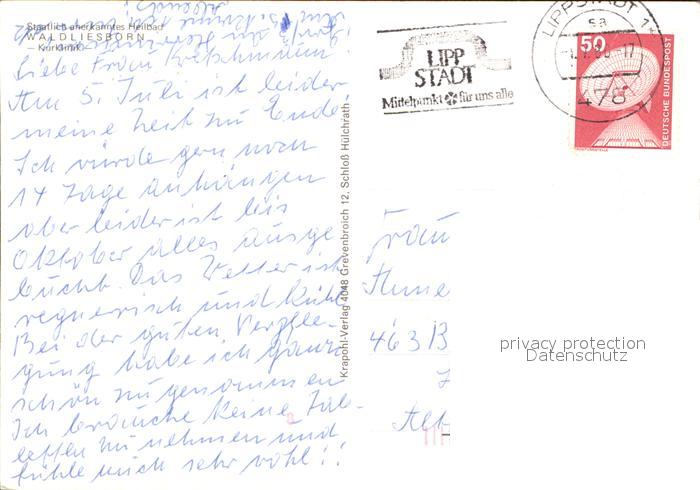 Staatlich anerkanntes Heilbad
WALDLIESBORN
– Kurklinik –
Liebe Frau
Am 5. Juli ist leider
meine Zeit zu Ende.
Ich würde gern noch
14 Tage anhängen
aber leider ist bis
Oktober alles ausge
bucht. Das Wetter ist
regnerisch und kühl
Bei der guten Verpfle-
gung habe ich ganz
schön zugenommen
Ich brauche keine Tab-
letten zu nehmen und
fühle mich sehr wohl!!
Krapohl-Verlag 4048 Grevenbroich 12, Schloß Hülchrath
LIPP
STADT
Mittelpunkt für uns alle
LIPPSTADT 1
sa
478
50
DEUTSCHE BUNDESPOST
Frau
Anne
463 B
Alt
privacy protection
Datenschutz